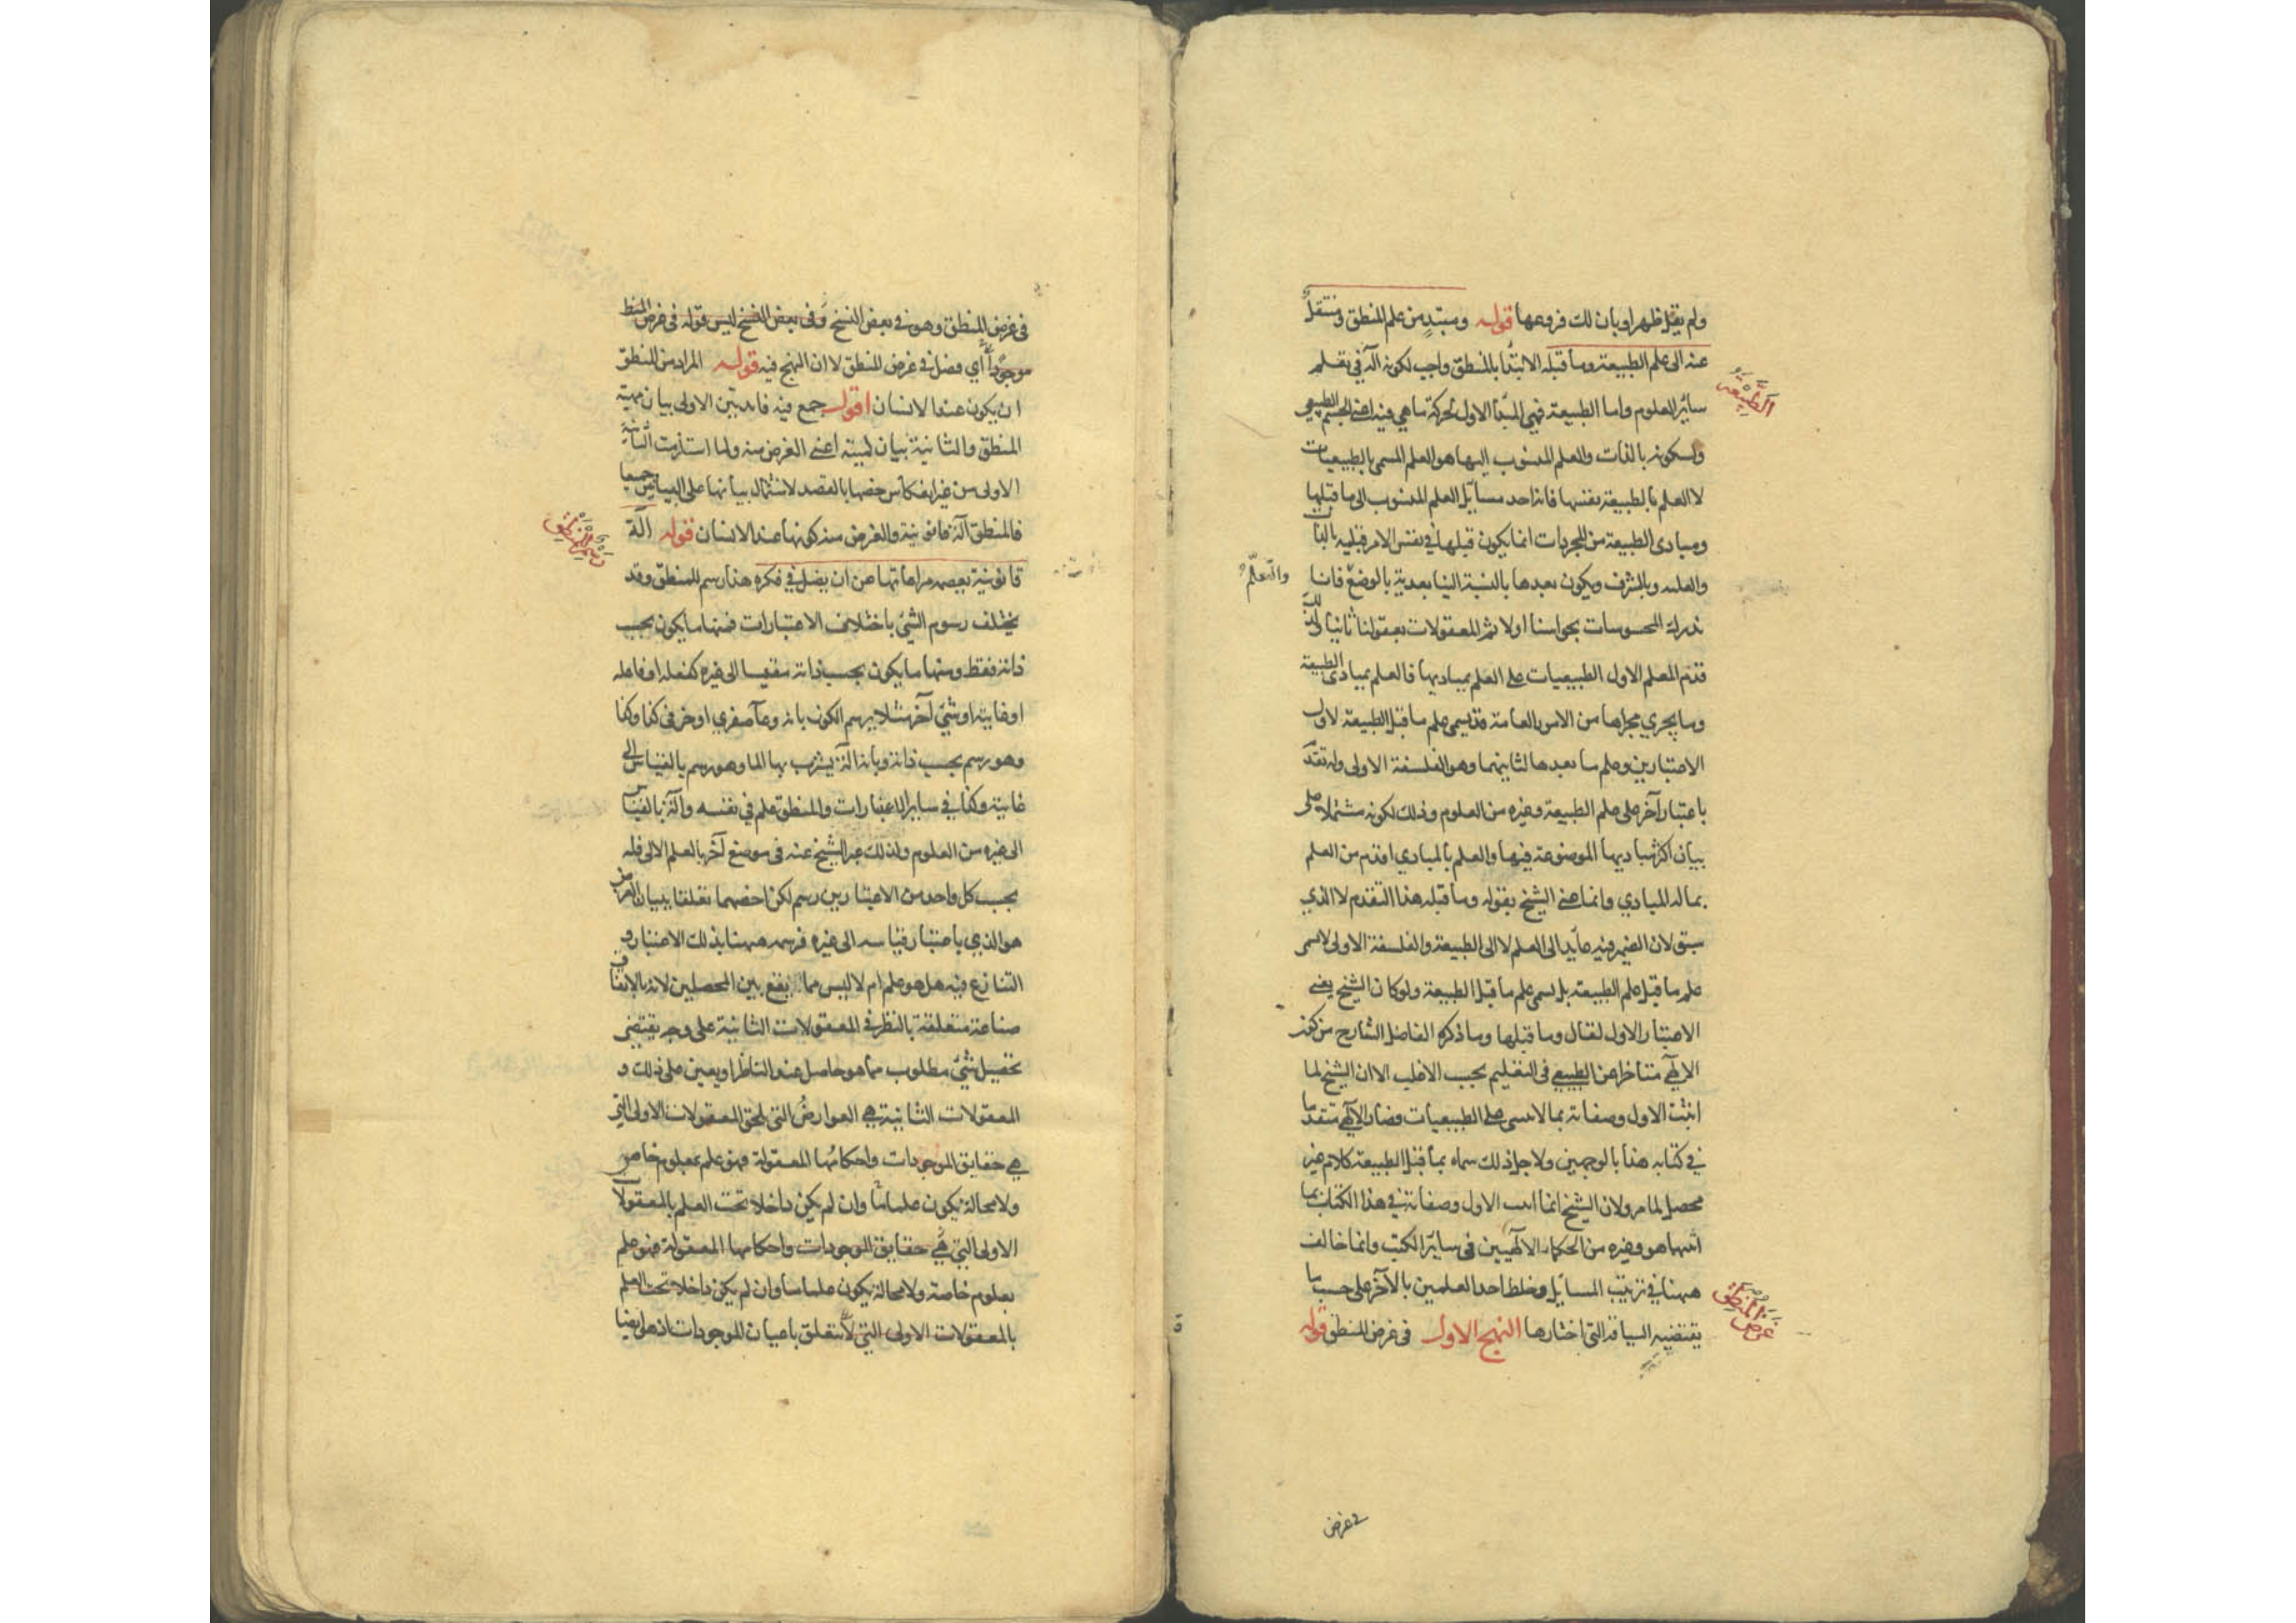 ولم يقل ظهر او بان لك فروعها قوله ومبتدٍ من علم المنطق ومنتقل
عنه الى علم الطبيعة وما قبله الابتداء بالمنطق واجب لكونه آلة في تعلم
الطبيعة
سائر العلوم واما الطبيعة فهي المبدأ الاول لحركة ما هي فيه اعني الجسم الطبيعي
ولسكونه بالذات والعلم المنسوب اليها هو العلم المسمى بالطبيعيات
لا العلم بالطبيعة نفسها فانه احد مسائل العلم المنسوب الى ما قبلها
ومبادى الطبيعة من المجردات انما يكون قبلها في نفس الامر قبلية بالذات
والعلية وبالشرف ويكون بعدها بالنسبة الينا بعدية بالوضع فانا
ندرك المحسوسات بحواسنا اولا ثم المعقولات بعقولنا ثانيا لذلك
قدم المعلم الاول الطبيعيات على العلم بمباديها فالعلم بمبادى الطبيعة
وما يجري مجراها من الامور العامة قد يسمى علم ما قبل الطبيعة لاول
الاعتبارين وعلم ما بعدها لثانيهما وهو الفلسفة الاولى وله تقدم
باعتبار آخر على علم الطبيعة وغيره من العلوم وذلك لكونه مشتملا على
بيان اكثر مباديها الموضوعة فيها والعلم بالمبادي اقدم من العلم
بما له المبادي وانما عنى الشيخ بقوله وما قبله هذا التقدم لا الذي
سبق لان الضمير فيه عايد الى العلم لا الى الطبيعة والفلسفة الاولى لا تسمى
علم ما قبل علم الطبيعة بل تسمى علم ما قبل الطبيعة ولو كان الشيخ يعني
الاعتبار الاول لقال وما قبلها وما ذكره الفاضل الشارح من كون
الالهي متأخرا عن الطبيعي في التعليم بحسب الاغلب الا ان الشيخ لما
اثبت الاول وصفاته بما لا يبتنى على الطبيعيات فصار الالهي متقدما
في كتابه هذا بالوجهين ولاجل ذلك سماه بما قبل الطبيعة كلام غير
محصل لما مر ولان الشيخ انما اثبت الاول وصفاته في هذا الكتاب بما
اثبتها هو وغيره من الحكماء الالهيين في سائر الكتب وانما خالف
ههنا في ترتيب المسايل وخلط احد العلمين بالآخر على حسب ما
يقتضيه السياقة التي اختارها النهج الاول في غرض المنطق قوله
غرض المنطق
والتعلم
في غرض
في غرض المنطق وهو في بعض النسخ وفى بعض النسخ ليس قوله في غرض المنطق
موجودا أي فصل في غرض المنطق لا ان النهج فيه قوله المراد من المنطق
ان يكون عند الانسان اقول جمع فيه فائدتين الاولى بيان مهية
المنطق والثانية بيان لميته اعني الغرض منه ولما استلزمت الثانية
الاولى من غير انعكاس خصها بالقصد لاشتمال بيانها على البيانين جميعا
فالمنطق آلة قانونية والغرض منه كونها عند الانسان قوله آلة
رسم المنطق
قانونية يعصمه مراعاتها عن ان يضل في فكره هذا رسم للمنطق وقد
يختلف رسوم الشيء باختلاف الاعتبارات فمنها ما يكون بحسب
ذاته فقط ومنها ما يكون بحسب ذاته مقيسا الى غيره كفعله او فاعله
او غايته او شيء آخر مثلا يرسم الكوز بانه وعاء صفري او خزفى كذا وكذا
وهو رسم بحسب ذاته وبانه آلة يشرب بها الماء وهو رسم بالقياس الى
غايته وكذا في ساير الاعتبارات والمنطق علم في نفسه وآلة بالقياس
الى غيره من العلوم ولذلك عبر الشيخ عنه في موضع آخر بالعلم الآلي فله
بحسب كل واحد من الاعتبارين رسم لكن اخصهما تعلقا ببيان الغرض
هو الذي باعتبار قياسه الى غيره فرسمه ههنا بذلك الاعتبار و
التنازع فيه هل هو علم ام لا ليس مما يقع بين المحصلين لانه بالاتفاق
صناعة متعلقة بالنظر في المعقولات الثانية على وجه يقتضي
تحصيل شيء مطلوب مما هو حاصل عند الناظر او يعين على ذلك و
المعقولات الثانية هي العوارض التي تلحق المعقولات الاولى التي
هي حقايق الموجودات واحكامها المعقولة فهو علم بمعلوم خاص
ولا محالة يكون علما ما وان لم يكن داخلا تحت العلم بالمعقولات
الاولى التي هي حقايق الموجودات واحكامها المعقولة فهو علم
بمعلوم خاصة ولا محالة يكون علما ما وان لم يكن داخلا تحت العلم
بالمعقولات الاولى التي لا تتعلق باعيان الموجودات اذ هو ايضا